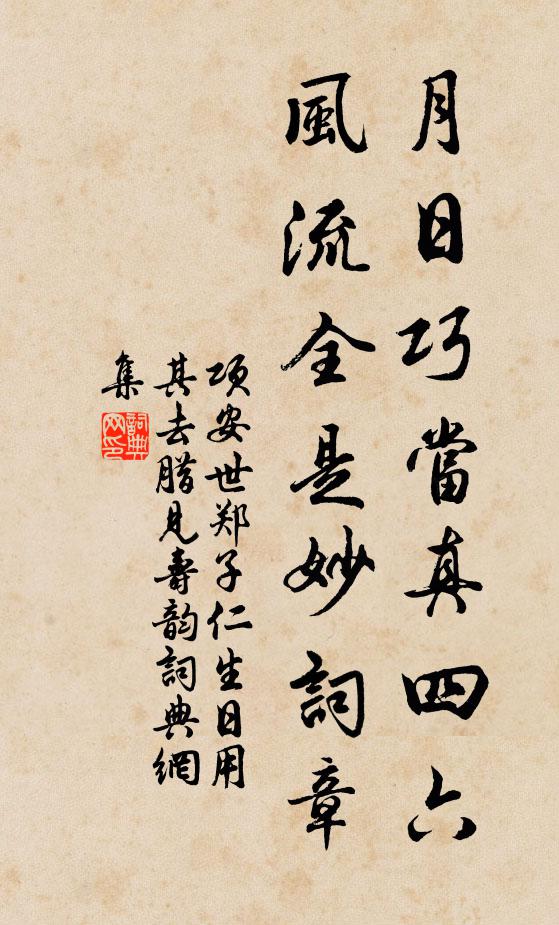 月日巧當真四六
風流全是妙詞章
项安世郑子仁生日用
其去腊見壽韵詞典網
集
詞典網印